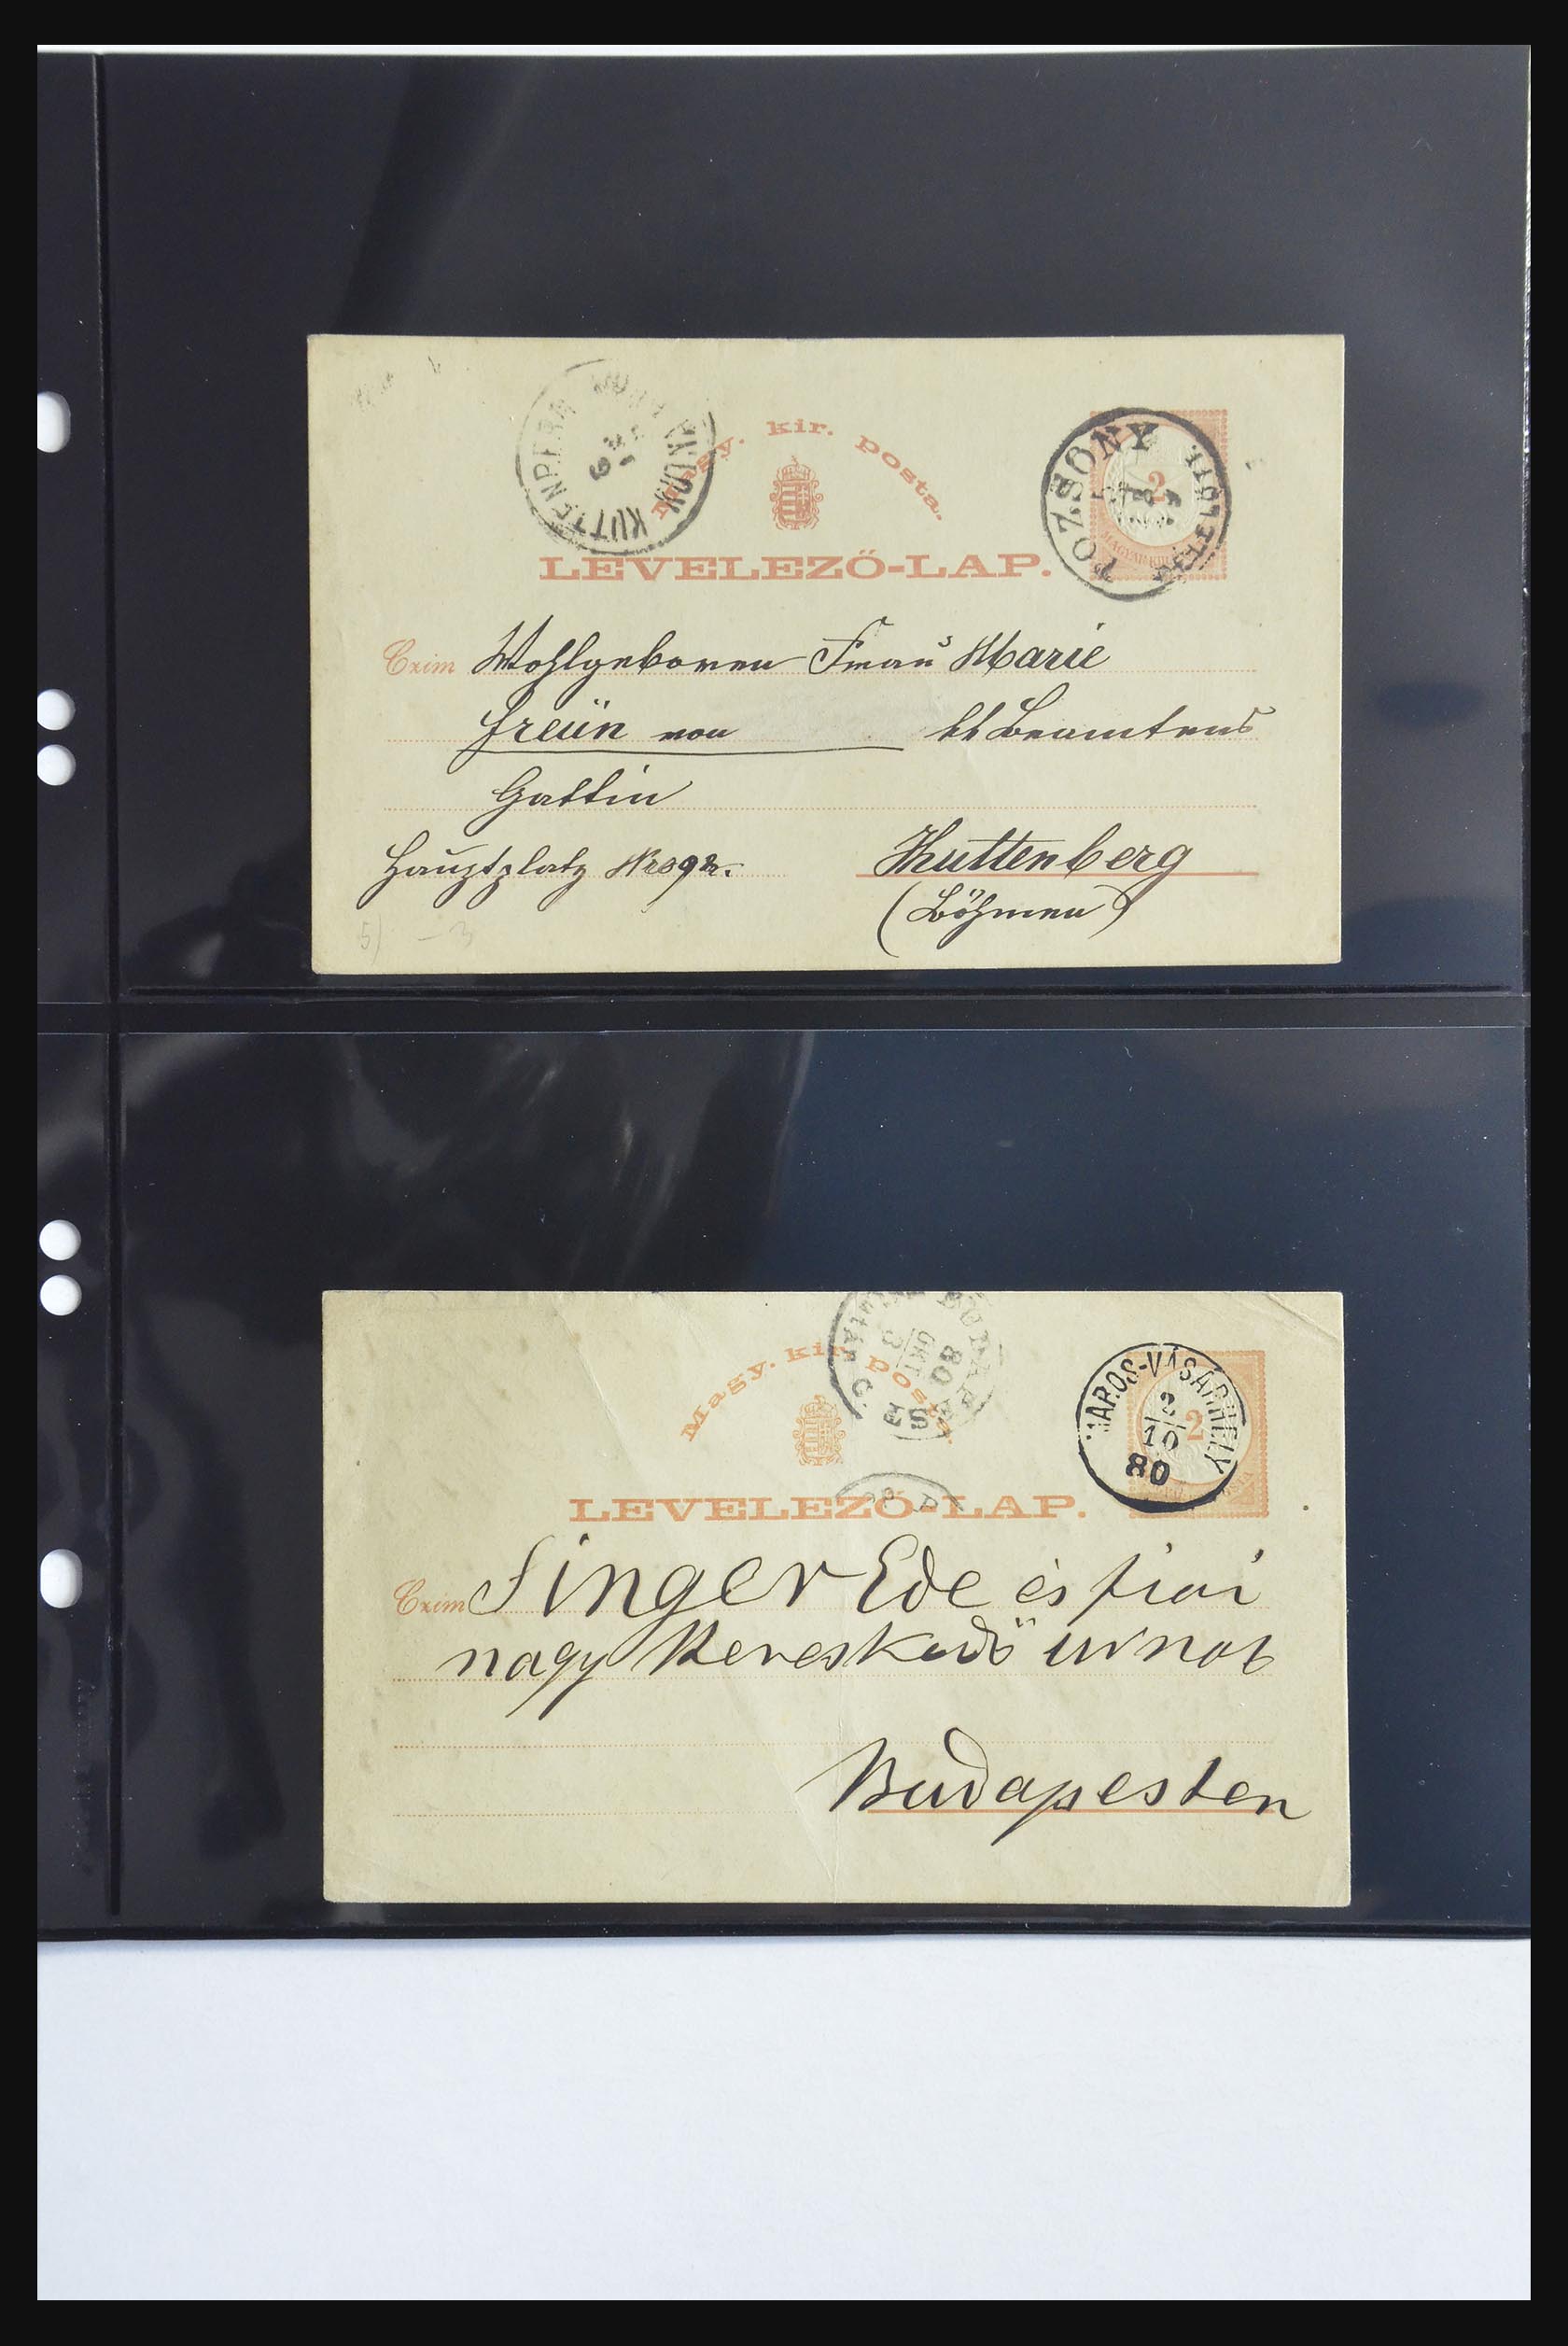 Magy. kir. posta.
LEVELEZŐ-LAP.
POZSONY
2
KUTTENBERG
Czim Wohlgeboren Frau Marie
Freiin von k k Beamtens
Gattin
Hauptplatz Nro 92.
Kuttenberg
(Böhmen)
5) - 3
Magy. kir. posta.
LEVELEZŐ-LAP.
80
OKT
3
MAROS-VÁSÁRHELY
2
10
80
2
Czim Singer Ede és fiai
nagy Kereskedő urnak
Budapesten